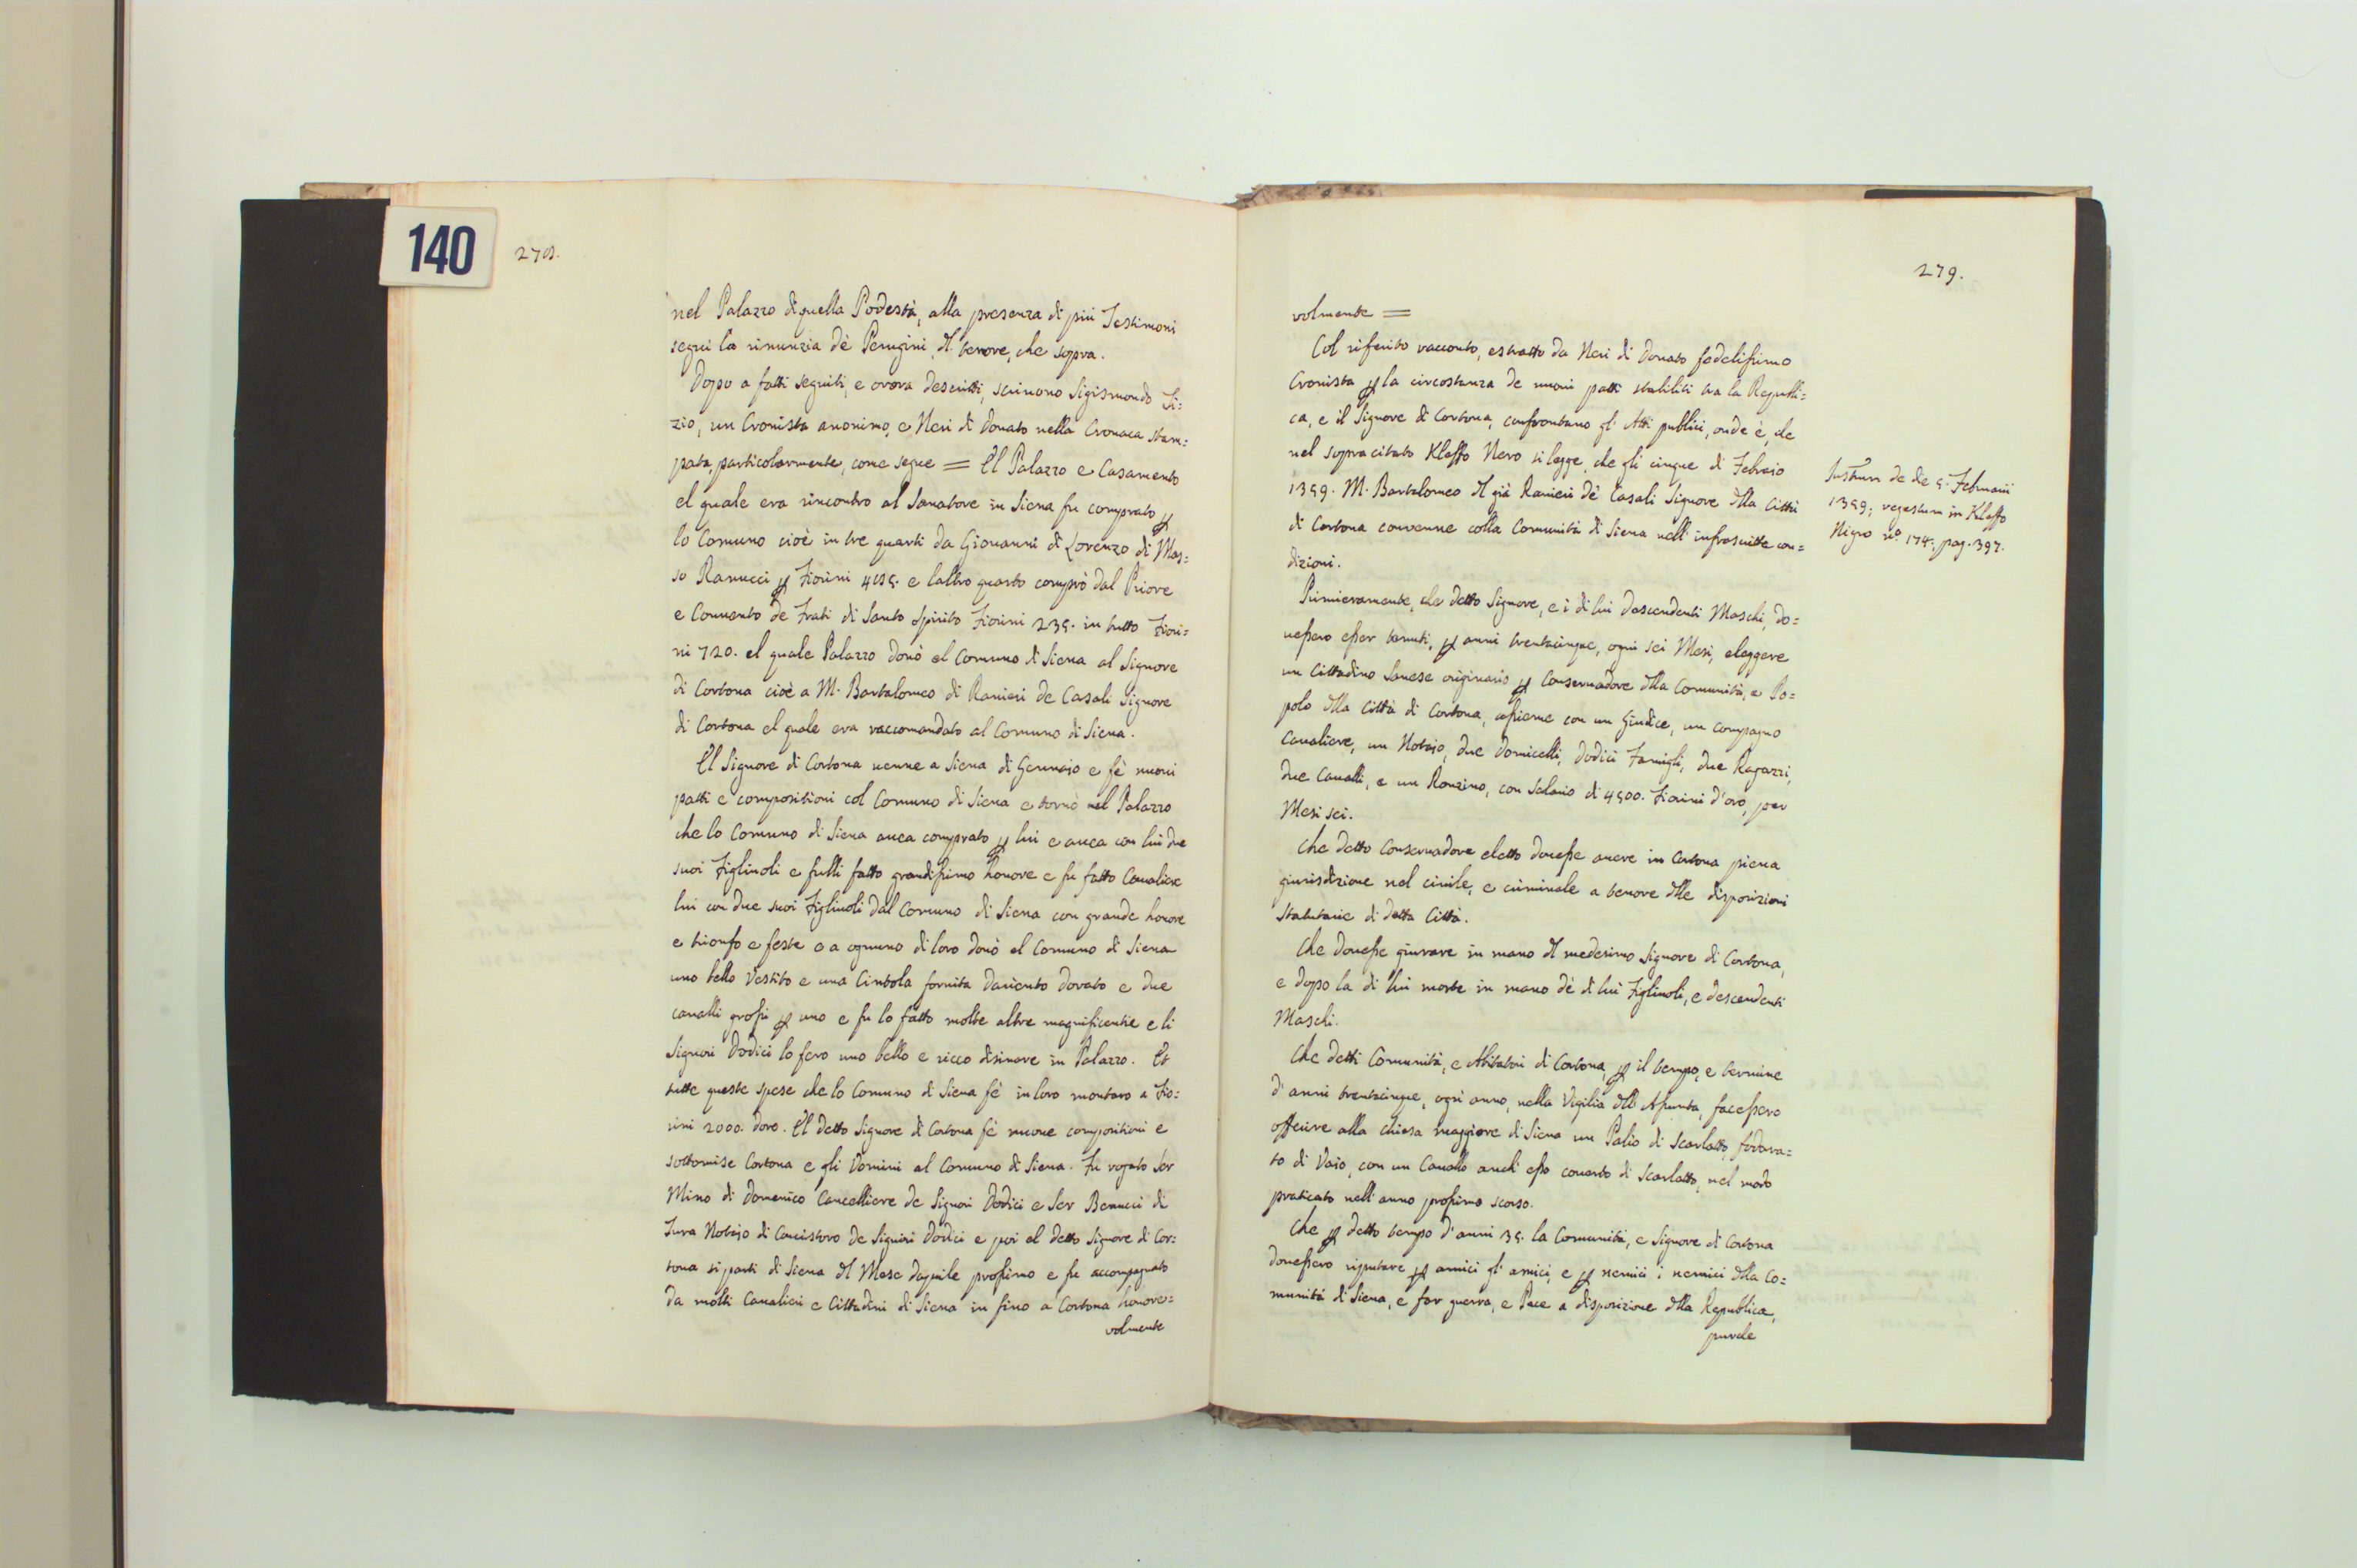 140
278.
nel Palazzo di quella Podestà, alla presenza di più Testimoni
seguì la rinunzia dè Perugini, dl tenore, che sopra.
Dopo a fatti seguiti, e ovora descritti, scrivono Sigismondo Ti=
zio, un Cronista anonimo, e Neri di Donato nella Cronaca stam=
pata, particolarmente, come segue = El Palazzo e Casamento
el quale era rincontro al Sanatore in Siena fu comprato p
lo Comuno cioè in tre quarti da Giouanni di Lorenzo di Mas=
so Ranucci p Fiorini 485. e laltro quarto comprò dal Priore
e Conuento de Frati di Santo Spirito Fiorini 235. in tutto Fiori=
ni 720. el quale Palazzo donò el Comuno di Siena al Signore
di Cortona cioè a M. Bartalomeo di Ranieri de Casali Signore
di Cortona el quale era raccomandato al Comuno di Siena.
El Signore di Cortona uenne a Siena di Gennajo e fè nuoui
patti e compositioni col Comuno di Siena e tornò nel Palazzo
che lo Comuno di Siena auea comprato p lui e auea con lui due
suoi Figliuoli e fulli fatto grandissimo honore e fu fatto Caualiere
lui con due suoi Figliuoli dal Comuno di Siena con grande honore
e trionfo e feste e a ognuno di loro donò el Comuno di Siena
uno bello Vestito e una Cintola fornita dariento dorato e due
caualli grossi p uno e fu lo fatto molte altre magnificentie e li
Signori Dodici lo fero uno bello e ricco disinare in Palazzo. Et
tutte queste spese che lo Comuno di Siena fè in loro montaro a Fio=
rini 2000. doro. El detto Signore di Cortona fè nuoue compositioni e
sottomise Cortona e gli Vomini al Comuno di Siena. Fu rogato Ser
Mino di Domenico Cancelliere de Signori Dodici e Ser Benucci di
Tura Notajo di Concistoro de Signori Dodici e poi el detto Signore di Cor=
tona si partì di Siena dl Mese daprile prossimo e fu accompagnato
da molti Caualieri e Cittadini di Siena in fino a Cortona honore=
volmente
279.
volmente =
Col riferito racconto, estratto da Neri di Donato fedelissimo
Cronista p la circostanza de nuoui patti stabiliti tra la Republi=
ca, e il Signore di Cortona, confrontano gl' Atti publici, onde è, che
nel sopracitato Kleffo Nero si legge, che gli cinque di Febraio
1359. M. Bartalomeo dl già Ranieri dè Casali Signore dlla Città
di Cortona conuenne colla Comunità di Siena nell' infrascritte con=
dizioni.
Instrum de die 5. Februarii
1359; regestum in Kleffo
Nigro nº 174. pag. 397.
Primieramente, che detto Signore, e i di lui descendenti Maschi, do=
uessero esser tenuti, p anni trentacinque, ogni sei Mesi, eleggere
un Cittadino Sanese originario p Conseruadore dlla Comunità, e Po=
polo dlla Città di Cortona, assieme con un Giudice, un compagno
Caualiere, un Notajo, due Domicelli, Dodici Famigli, due Ragazzi,
due Caualli, e un Ronzino, con Salario di 4500. Fiorini d'oro, per
Mesi sei.
Che detto Conseruadore eletto douesse auere in Cortona piena
giurisdizione nel ciuile, e criminale a tenore dlle disposizioni
Statutarie di detta Città.
Che douesse giurare in mano dl medesimo Signore di Cortona,
e dopo la di lui morte in mano dè di lui Figliuoli, e descendenti
Maschi.
Che detti Comunità, e Abitatori di Cortona, p il tempo, e termine
d' anni trentacinque, ogni anno, nella Vigilia dll' Assunta, facessero
offerire alla Chiesa maggiore di Siena un Palio di Scarlatto, fodera=
to di Vaio, con un Cauallo anch' esso couerto di Scarlatto, nel modo
praticato nell' anno prossimo scorso.
Che p detto tempo d' anni 35. la Comunità, e Signore di Cortona
douessero riputare p amici gl' amici, e p nemici i nemici dlla Co=
munità di Siena, e far guerra, e Pace a disposizione dlla Republica,
purche